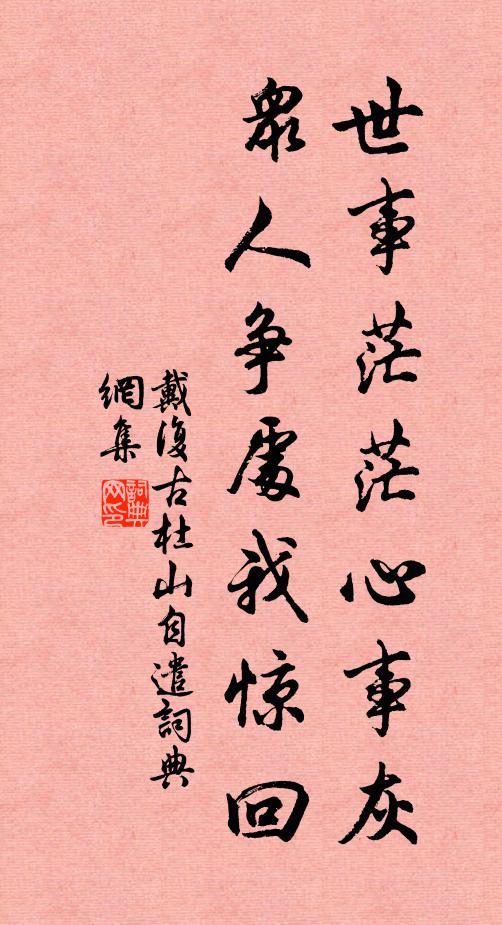 世事茫茫心事灰
眾人爭處我惊回
戴復古杜山自遣詞典
網集
詞典網印